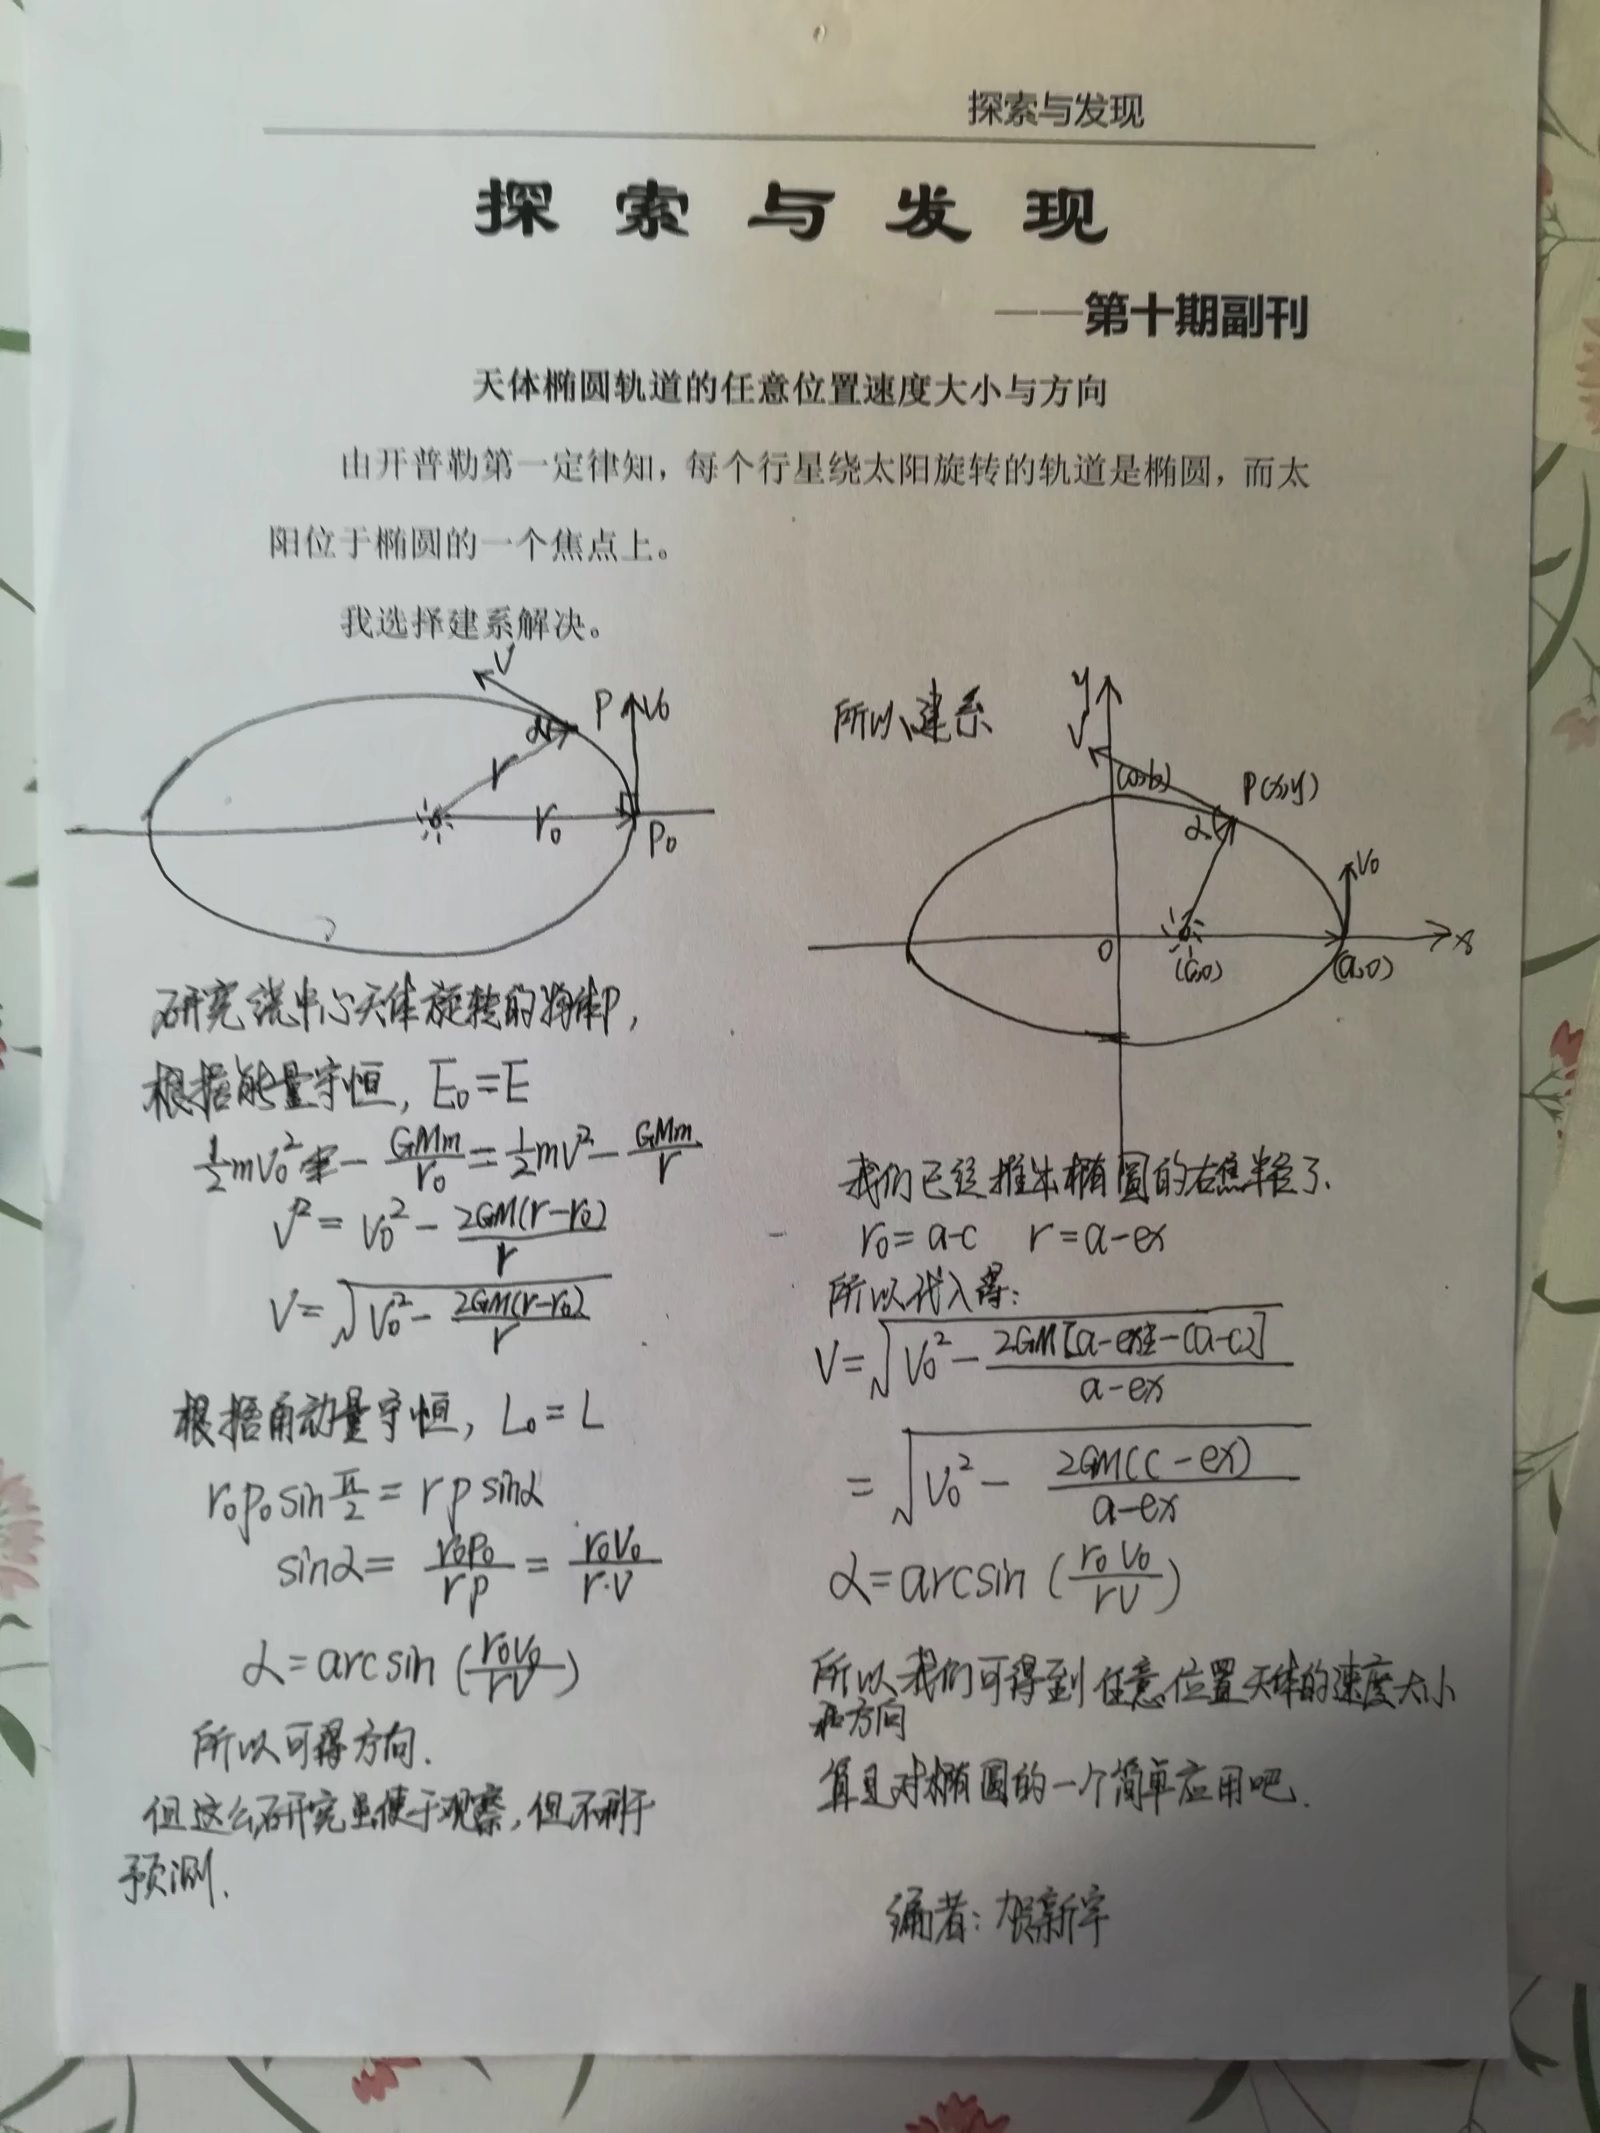 探索与发现
探索与发现
——第十期副刊
天体椭圆轨道的任意位置速度大小与方向
由开普勒第一定律知，每个行星绕太阳旋转的轨道是椭圆，而太
阳位于椭圆的一个焦点上。
我选择建系解决。
V
P
V₀
α
r
r₀
P₀
研究绕中心天体旋转的物体P,
根据能量守恒, E₀=E
½mV₀² - GMm/r₀ = ½mV² - GMm/r
V² = V₀² - 2GM(r-r₀)/r
V = √(V₀² - 2GM(r-r₀)/r)
根据角动量守恒, L₀=L
r₀p₀ sin π/2 = r p sinα
sinα = r₀p₀/rp = r₀V₀/r·V
α = arcsin (r₀V₀/rV)
所以可得方向.
但这么研究虽便于观察, 但不利于
预测.
所以建系
y
V
(0,b)
P(x,y)
α
V₀
O
(c,0)
(a,0)
x
我们已经推出椭圆的右焦半径了.
r₀=a-c r=a-ex
所以代入得:
V = √(V₀² - 2GM[a-ex-(a-c)]/a-ex)
= √(V₀² - 2GM(c-ex)/a-ex)
α = arcsin (r₀V₀/rV)
所以我们可得到任意位置天体的速度大小
和方向
算是对椭圆的一个简单应用吧.
编者: 贺新宇